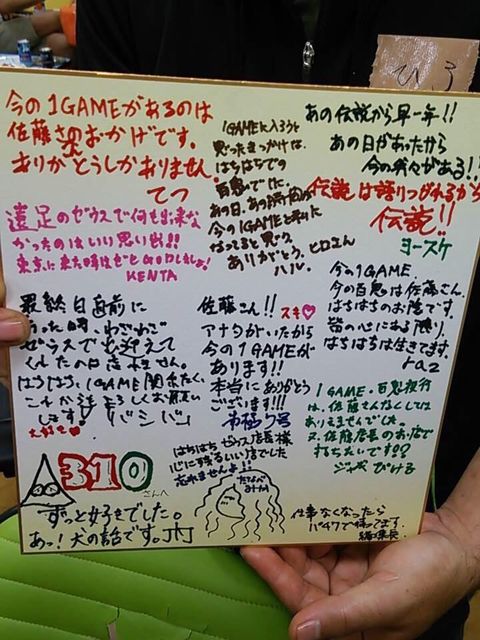 ひろ
今の1GAMEがあるのは
佐藤さんのおかげです。
ありがとうしかありません。
てつ
1GAMEに入ろうと
思ったきっかけは、
はちはちでの
百鬼でした。
あの日、あの
今の1GAMEと
ありがとう。ヒロくん
ハル。
あの伝説から早一年!!
あの日があったから
今の我々がある!!
伝説は語りつがれるから
伝説!!
ヨースケ
遠足のゼウスで何も出来な
かったのはいい思い出!!
東京に来た時はぜひGODしましょ!
KENTA
最終日直前に
行った時、わざわざ
ゼウスでお迎えて
くれたのは忘れません。
はちはち、1GAME関係なく、
これからもよろしくお願い
します! バシバシ
大好き♥
佐藤さん!! スキ♡
アナタがいたから
今の1GAMEが
あります!!
本当にありがとう
ございます!!!
今の1GAME、
今の百鬼は佐藤さん、
はちはちのお陰です。
皆の心にある限り、
はちはちは生きてます。
1GAME、百鬼夜行
は、佐藤さんなくしては
ありえませんでした。
又、佐藤店長のお店で
打ちたいです??
ジャギ ぴける
はちはちゼウス店長様
心に残るしい店でした
忘れませんよ!!
310
さんへ
ずっと好きでした。
あっ!犬の話です。
仕事なくなったら
バイクで待ってます。
編集長